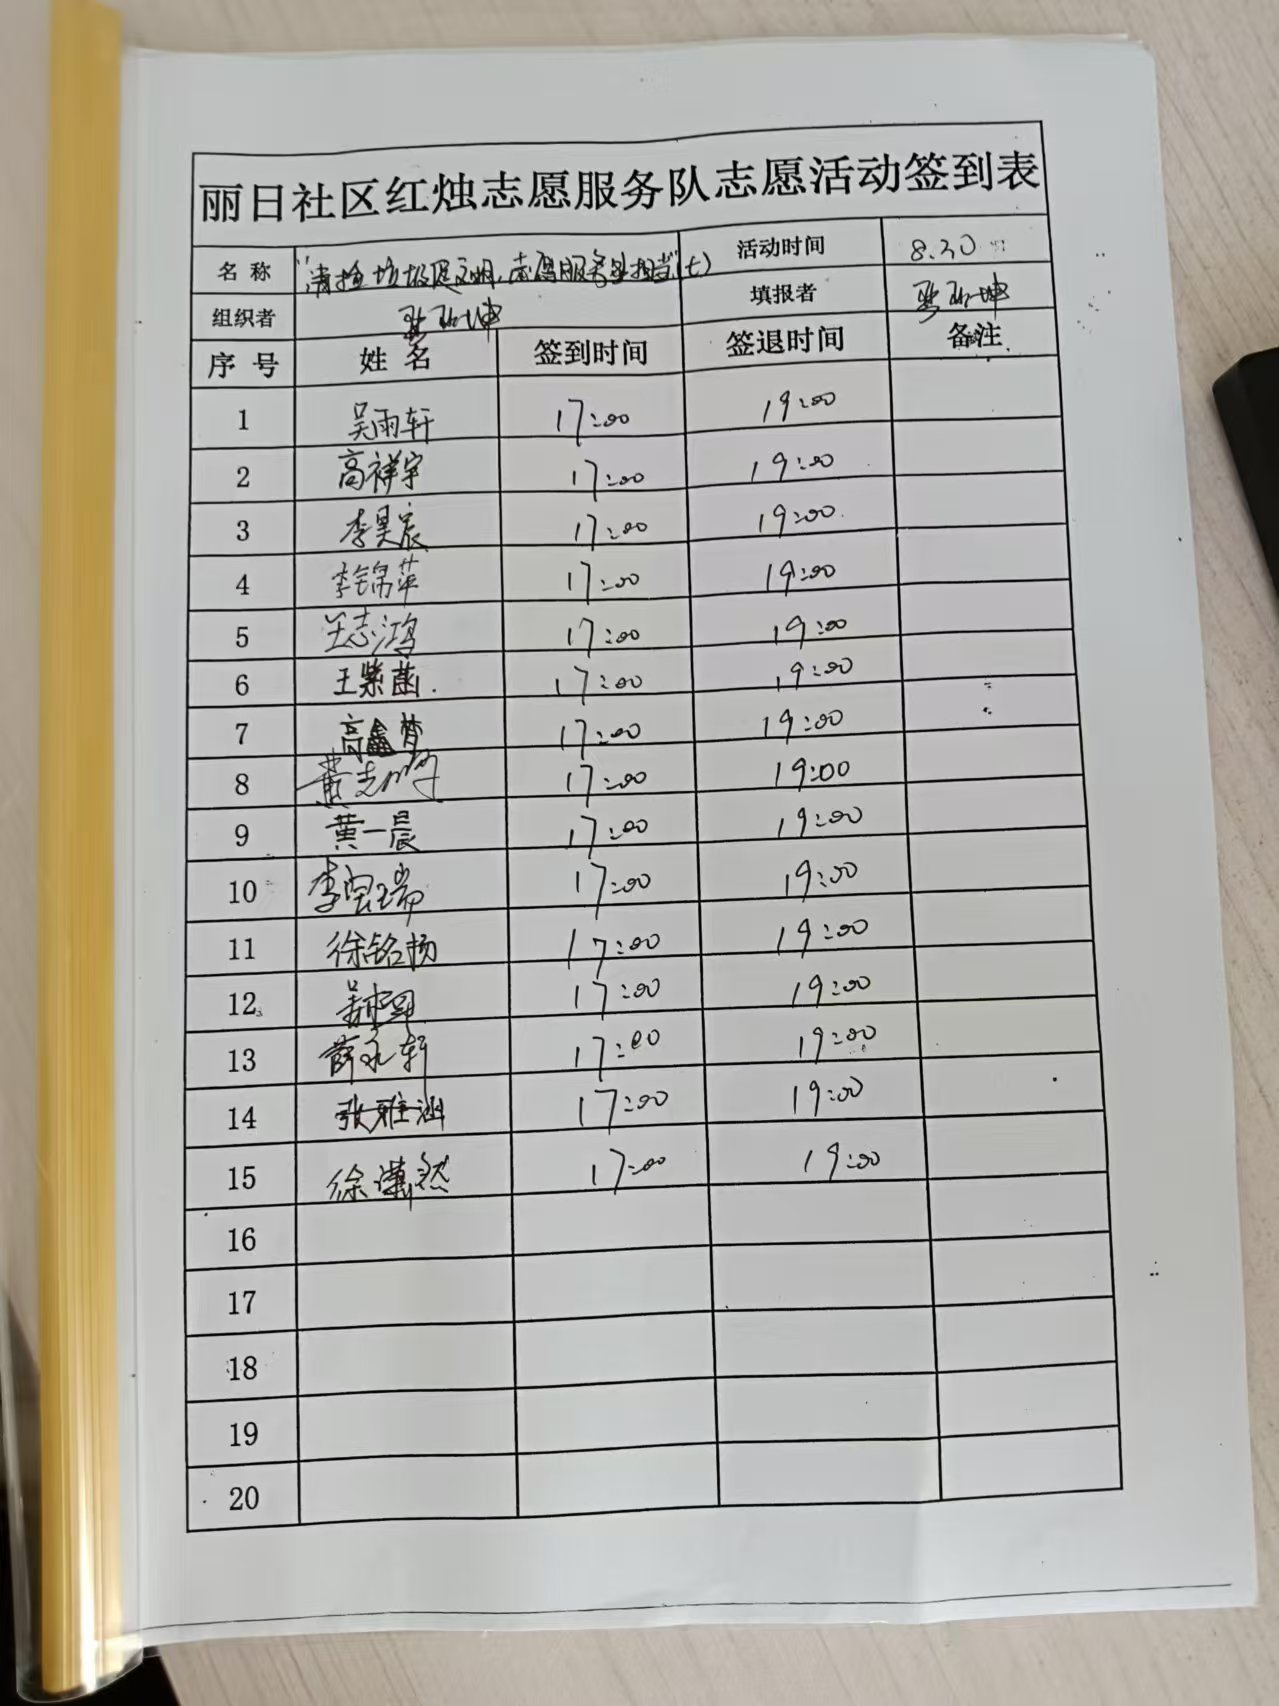 丽日社区红烛志愿服务队志愿活动签到表
名称 "清捡垃圾促文明,志愿服务显担当"(七) 活动时间 8.30
组织者 填报者
序号 姓名 签到时间 签退时间 备注
1 吴雨轩 17:00 19:00
2 高祥宇 17:00 19:00
3 李昊宸 17:00 19:00
4 李锦萍 17:00 19:00
5 王志鸿 17:00 19:00
6 王紫菡. 17:00 19:00
7 高鑫梦 17:00 19:00
8 黄志 17:00 19:00
9 黄一晨 17:00 19:00
10 李 瑞 17:00 19:00
11 徐铭杨 17:00 19:00
12 17:00 19:00
13 薛永轩 17:00 19:00
14 张雅涵 17:00 19:00
15 徐潇然 17:00 19:00
16
17
18
19
20